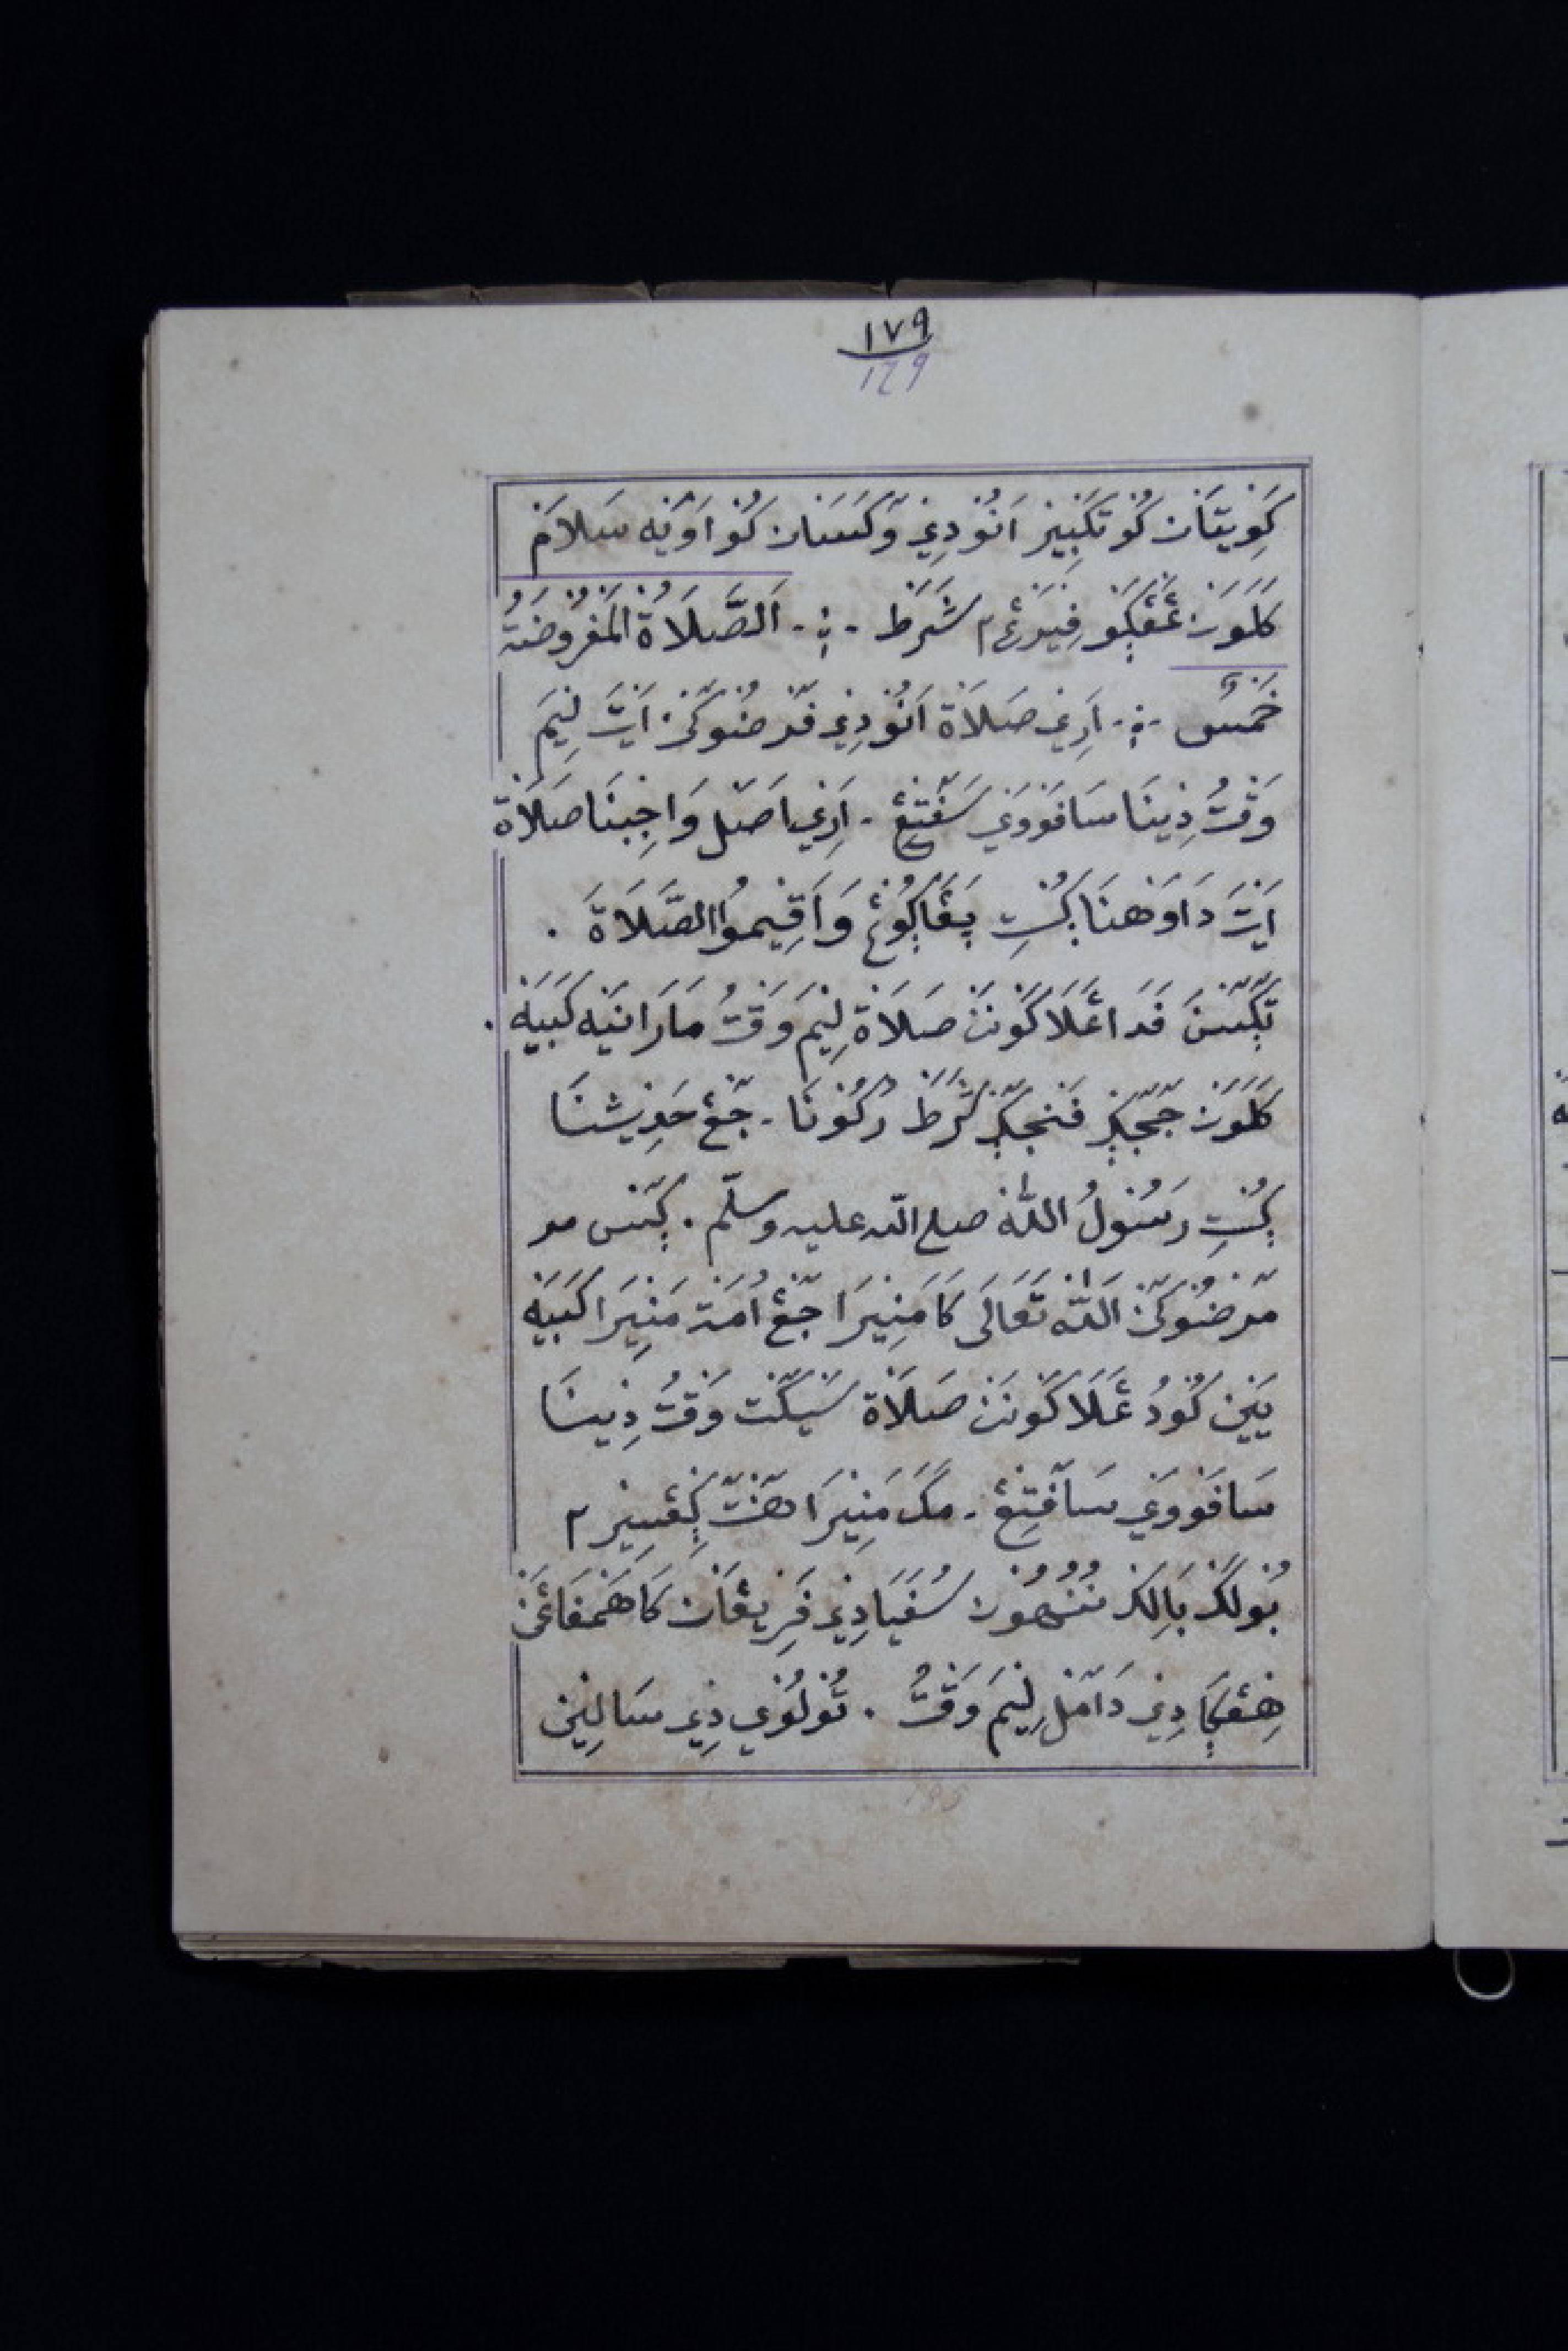 ١٧٩
129
كَوِيتَانْ كُو تَكْبِيرْ اَنُودِيْ وَكَسَانْ كُو اَوْيَه سَلَامْ
كَلَوَنْ عَڠْكَو فِيَرَڠ٢ شَرَطْ . اَلصَّلَاةُ الْمَفْرُوضَةُ
خَمْسٌ . اَرِيْ صَلَاةْ اَنُودِيْ فَرْضُوكَنْ اَيْتَ لِيمَ
وَقْتُ دِينَا سَافَووَيْ سَفَتِڠْ . اَرِيْ اَصَلْ وَاجِبْنَا صَلَاةْ
اَيْتَ دَاوَهْنَا ڮُسْتِ يڠَاڮُوڠْ وَاَقِيمُوا الصَّلَاةَ .
تڮَسْنَ فَدَا عَلَاكَونَنْ صَلَاةْ لِيمَ وَقْتُ مَارَانَيَه كَبَيَه .
كَلَوَنْ جَڠْجَڮْ فَنْجَڮْ شَرَطْ رُكُونَا . جَڠْ حَدِيثْنَا
ڮُسْتِ رَسُولُ اللّٰه صلى اللّه عليه وسلّم . ڮَنْس مر
مرضُوكَنْ اَللّٰه تَعَالَى كَامَنِيرَا جَڠْ اُمَة مَنِيرَا كَبَيَه
يَيْن كُودُ عَلَاكَونَنْ صَلَاةْ سَيْكَتْ وَقْتُ دِينَا
سَافَووَيْ سَافَتِڠْ . مَكَ مَنِيرَا هَنْتَ ڮڠسِير٢
بُولَكْ بَالِكْ نُنُهُونْ سُفَيَا دِيْ فَرِيڠَانْ كَاهَمْفَاعَنْ
هِڠْڮَا دِيْ دَامَلْ لِيمَ وَقْتُ . تُولُوي دِيْ سَالِينْ